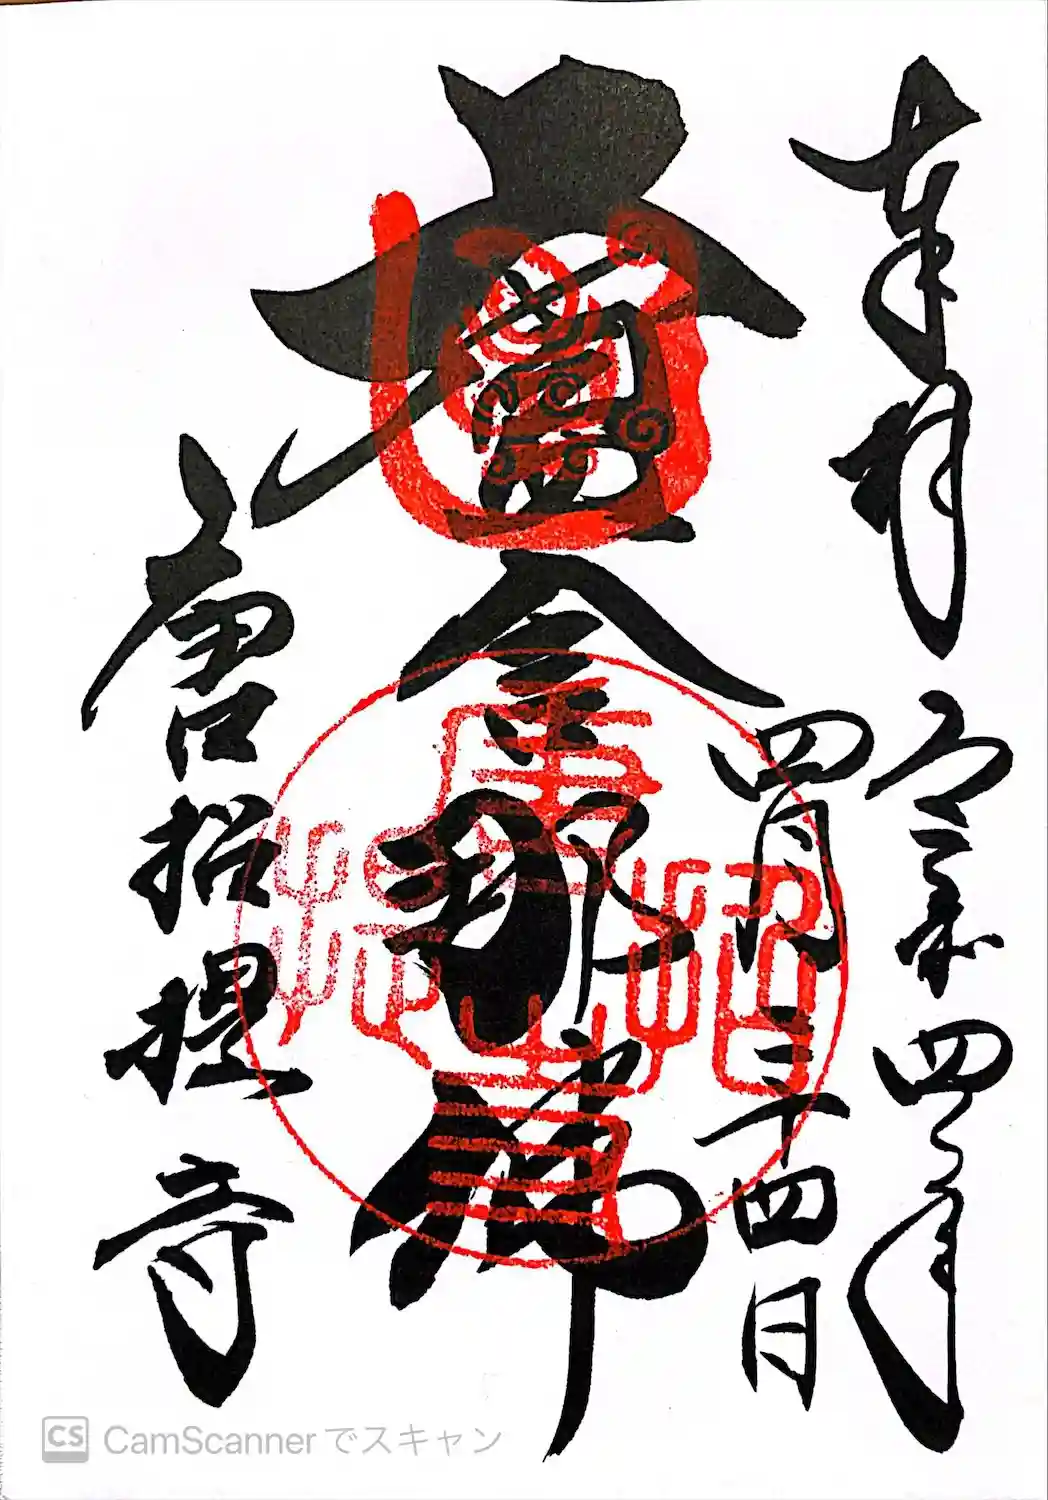 奉拝
令和四年
四月二十四日
盧舎那佛
唐招提寺
CS CamScannerでスキャン